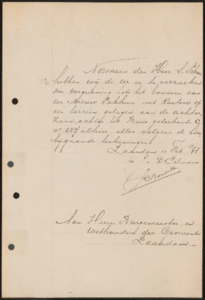 Namens den Heer S.
hebben wij de eer U te verzoeken
om vergunning tot het bouwen van
een Nieuw Pakhuis met Kantoor op
een terrein gelegen aan de achter
Zaan, achter het Huis geteekend
No 257 alhier, alles volgens de
bijgaande teekeningen.
Zaandam 11 Feb.
Aan Heeren Burgemeester en
Wethouders der Gemeente
Zaandam.